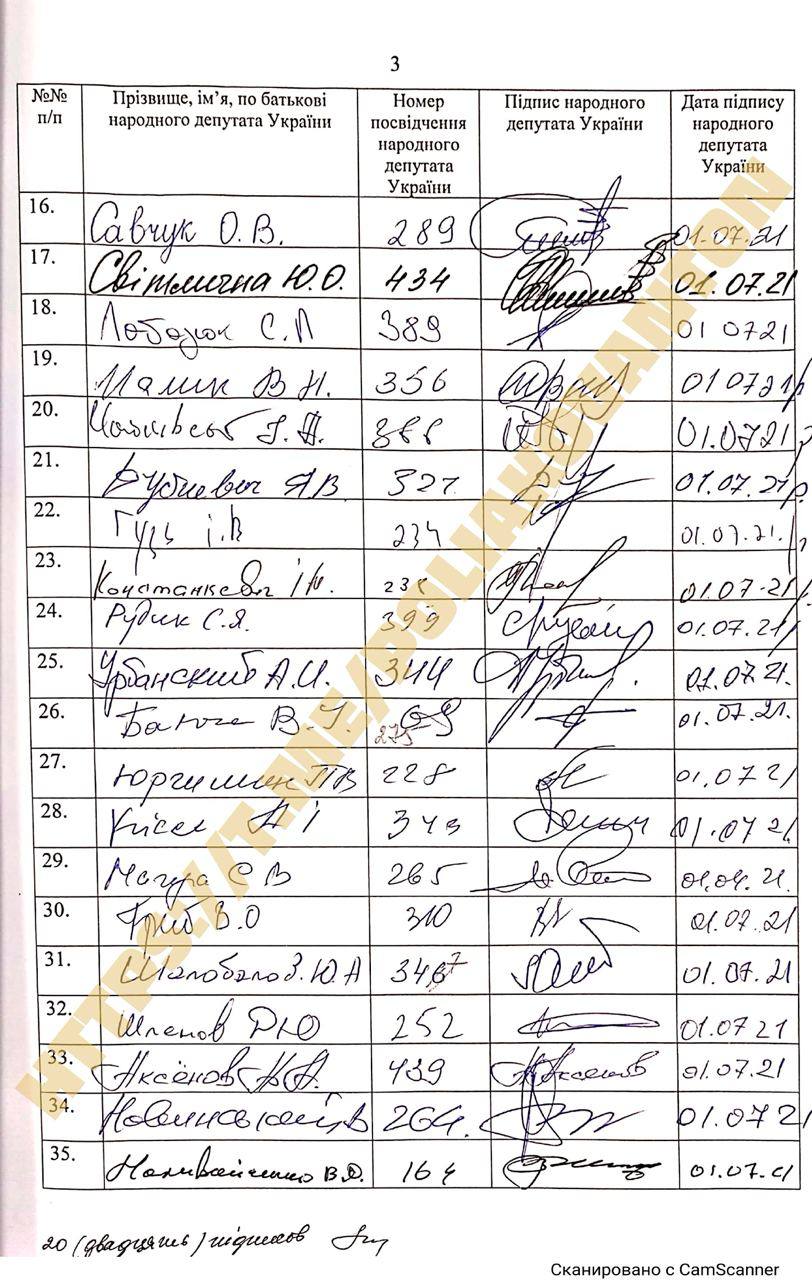 3
№№ п/п Прізвище, ім’я, по батькові народного депутата України Номер посвідчення народного депутата України Підпис народного депутата України Дата підпису народного депутата України
16. Савчук О.В. 289 01.07.21
17. Світлична Ю.О. 434 01.07.21
18. Лабазюк С.П 389 01 07 21
19. Малик В Н. 356 01 07 21р
20. 01.07.21р
21. Рудневич Я В. 327 01.07.21р.
22. Гузь І.В 234 01.07.21р
23. Констанкевич І М. 01.07.21р
24. Рудик С.Я. 399 01.07.21р
25. Урбанский А.И. 344 01.07.21.
26. В. 275 01.07.21.
27. Юрчишин П В 228 01.07 21
28. Кісєл 01.07 21.
29. Магера С В 265 21.
30. Гриб В.О 310 01.07.21
31. 01.07.21
32. Шпенов Д Ю 252 01.07 21
33. Аксёнов 439 Аксенов 01.07.21
34. Новинський В 264. 01.07 21
35. Наливайченко В.О. 164 01.07.21
20 (двадцять) підписів
HTTPS://T.ME/POLIAKOVANTON
Сканировано с CamScanner